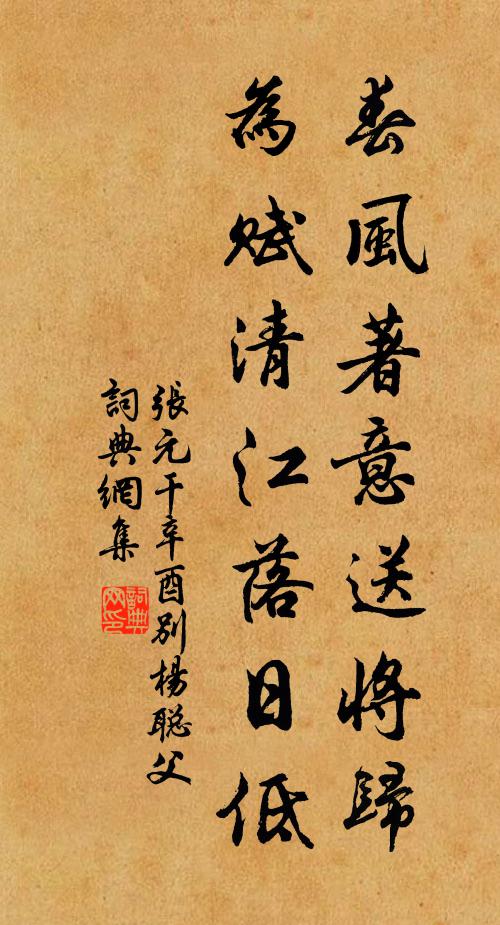 春風著意送將歸
為賦清江落日低
張元干辛酉別楊聰父
詞典網集
詞典網印